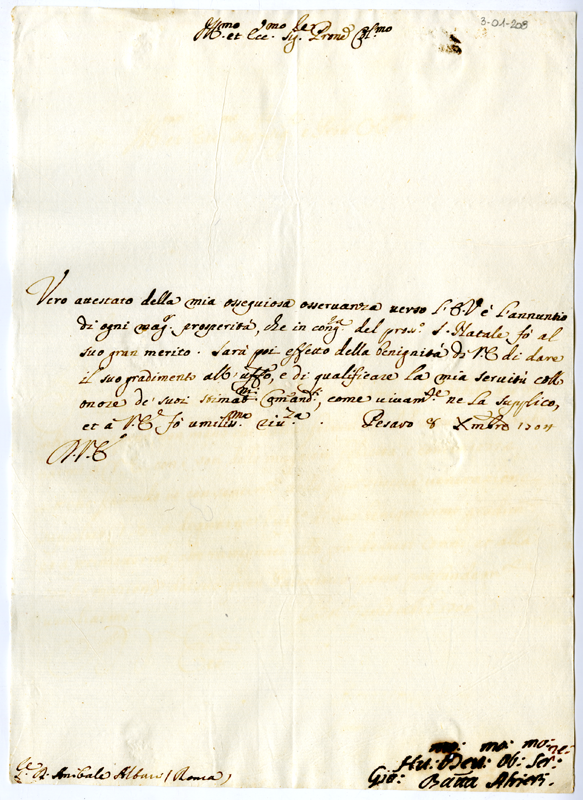 3-01-208
Ill.mo et Ecc.mo Sig.re Prone Col.mo
Vero attestato della mia ossequiosa osseruanza uerso l'E.V. è l'annuntio
di ogni mag.r prosperità, che in cong.ra del pross.o S. Natale fò al
suo gran merito. Sarà poi effetto della benignità di V.E. di dare
il suo gradimento all'uff.o, e di qualificare la mia seruitù coll'
onore de' suoi stimat.mi Comand.i, come viuam.te ne la supplico,
et à V.E. fò umiliss.ma riu.za. Pesaro 8 Xmbre 1704
D.V.E.
S.r D. Anibale Albani (Roma)
Hu.mo: Deu.mo: Ob.mo: Ser.ne:
Gio: Batta